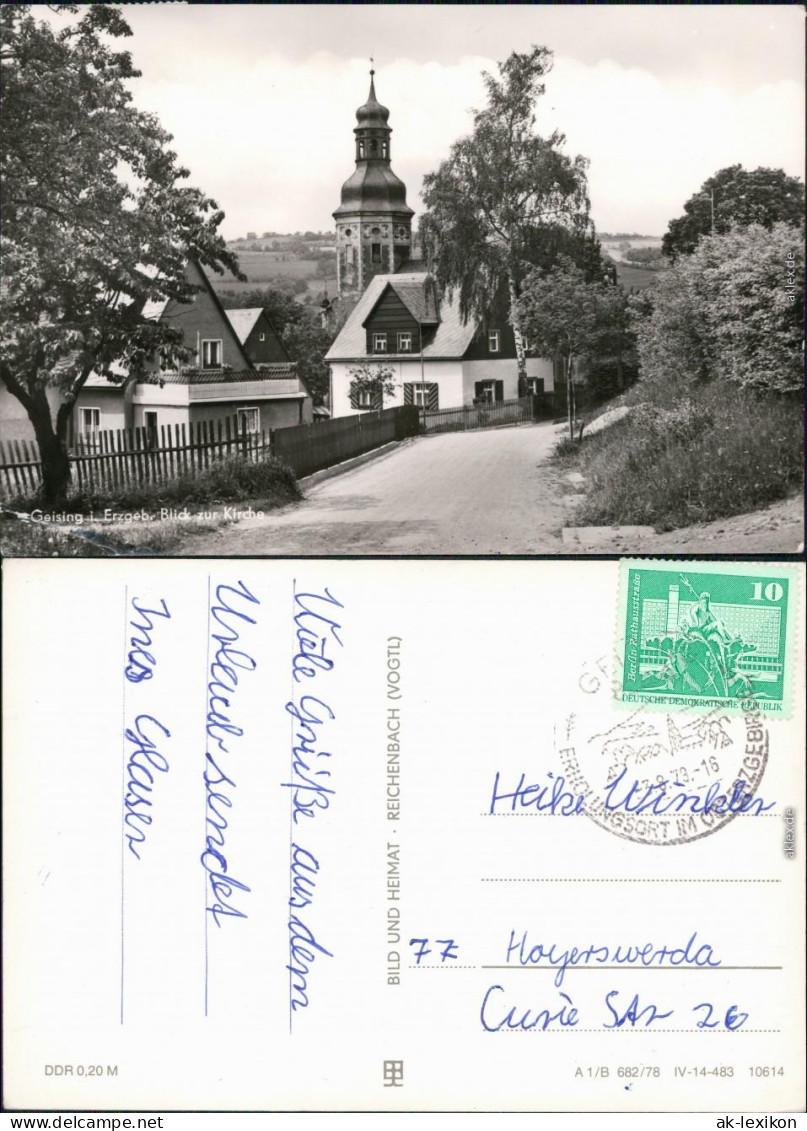 Geising i. Erzgeb. Blick zur Kirche
aklex.de
Viele Grüße aus dem
Urlaub sendet
Ines Glaser
BILD UND HEIMAT · REICHENBACH (VOGTL)
10
Berlin-Rathausstraße
DEUTSCHE DEMOKRATISCHE REPUBLIK
ERHOLUNGSORT IM OSTERZGEBIRGE
Heike Winkler
77 Hoyerswerda
Curie Str 26
aklex.de
DDR 0,20 M
A 1/B 682/78 IV-14-483 10614
www.delcampe.net
ak-lexikon